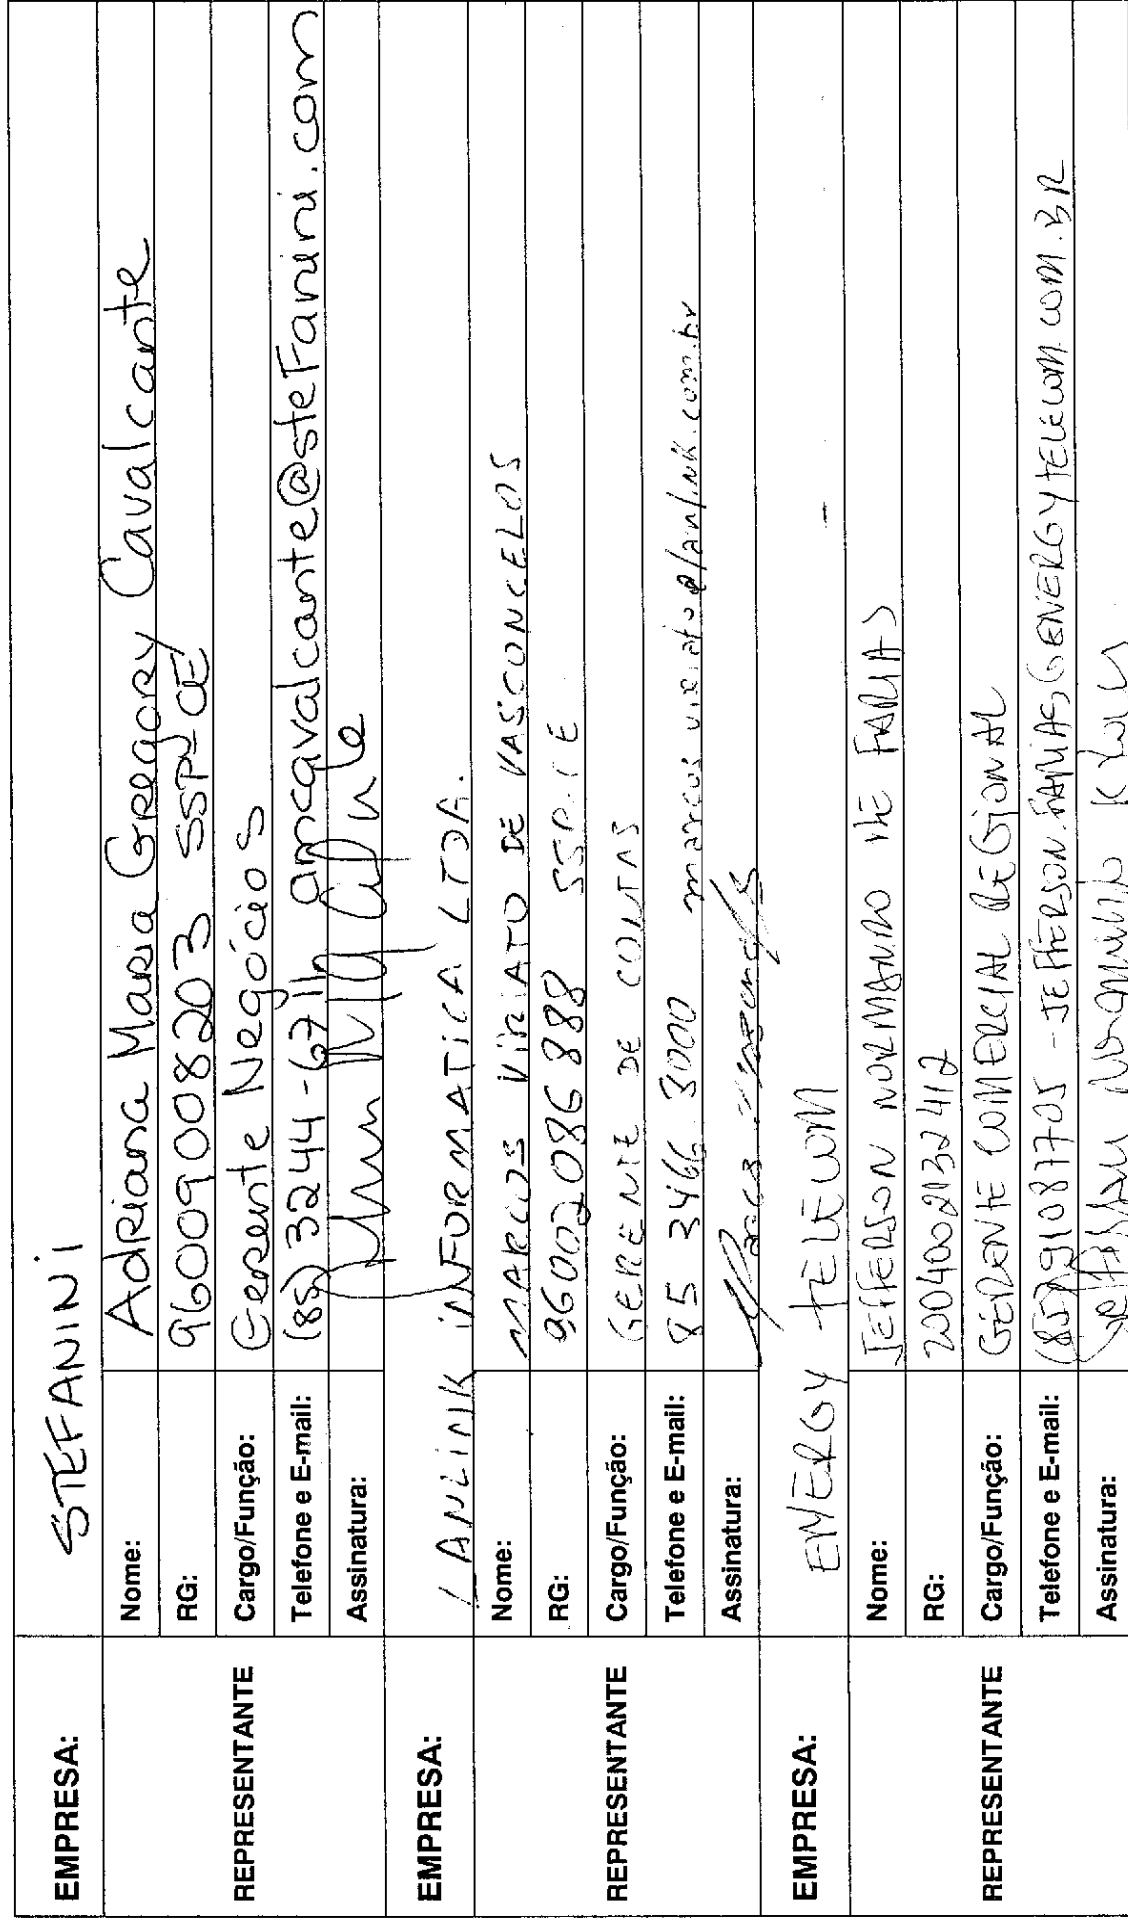 EMPRESA: STEFANINI
REPRESENTANTE
Nome: Adriana Maria Gregory Cavalcante
RG: 96009008203 SSP-CE
Cargo/Função: Gerente Negócios
Telefone e E-mail: (85) 3244-6711 amcavalcante@stefanini.com
Assinatura:
EMPRESA: LANLINK INFORMATICA LTDA.
REPRESENTANTE
Nome: MARCOS VIRIATO DE VASCONCELOS
RG: 96002086888 SSP.CE
Cargo/Função: GERENTE DE CONTAS
Telefone e E-mail: 85 3466 3000 marcos.viriato@lanlink.com.br
Assinatura:
EMPRESA: ENERGY TELECOM
REPRESENTANTE
Nome: JEFFERSON NORMANDO DE FARIAS
RG: 2004002132412
Cargo/Função: GERENTE COMERCIAL REGIONAL
Telefone e E-mail: (85) 91087705 - JEFFERSON.FARIAS@ENERGYTELECOM.COM.BR
Assinatura: